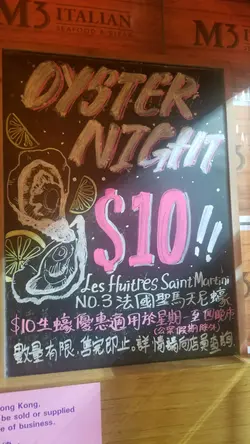 M3 ITALIAN
M3
OYSTER
NIGHT
$10!!
Les Huîtres Saint Martin
NO.3 法國聖馬天尼蠔
$10生蠔優惠適用於星期一至四晚市
(公眾假期除外)
數量有限,售完即止。詳情請向店員查詢
ong Kong,
be sold or supplied
e of business.